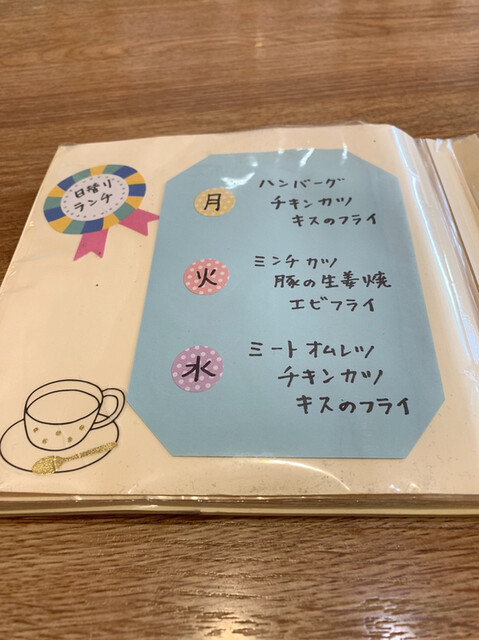 日替り
ランチ
月
ハンバーグ
チキンカツ
キスのフライ
火
ミンチカツ
豚の生姜焼
エビフライ
水
ミートオムレツ
チキンカツ
キスのフライ